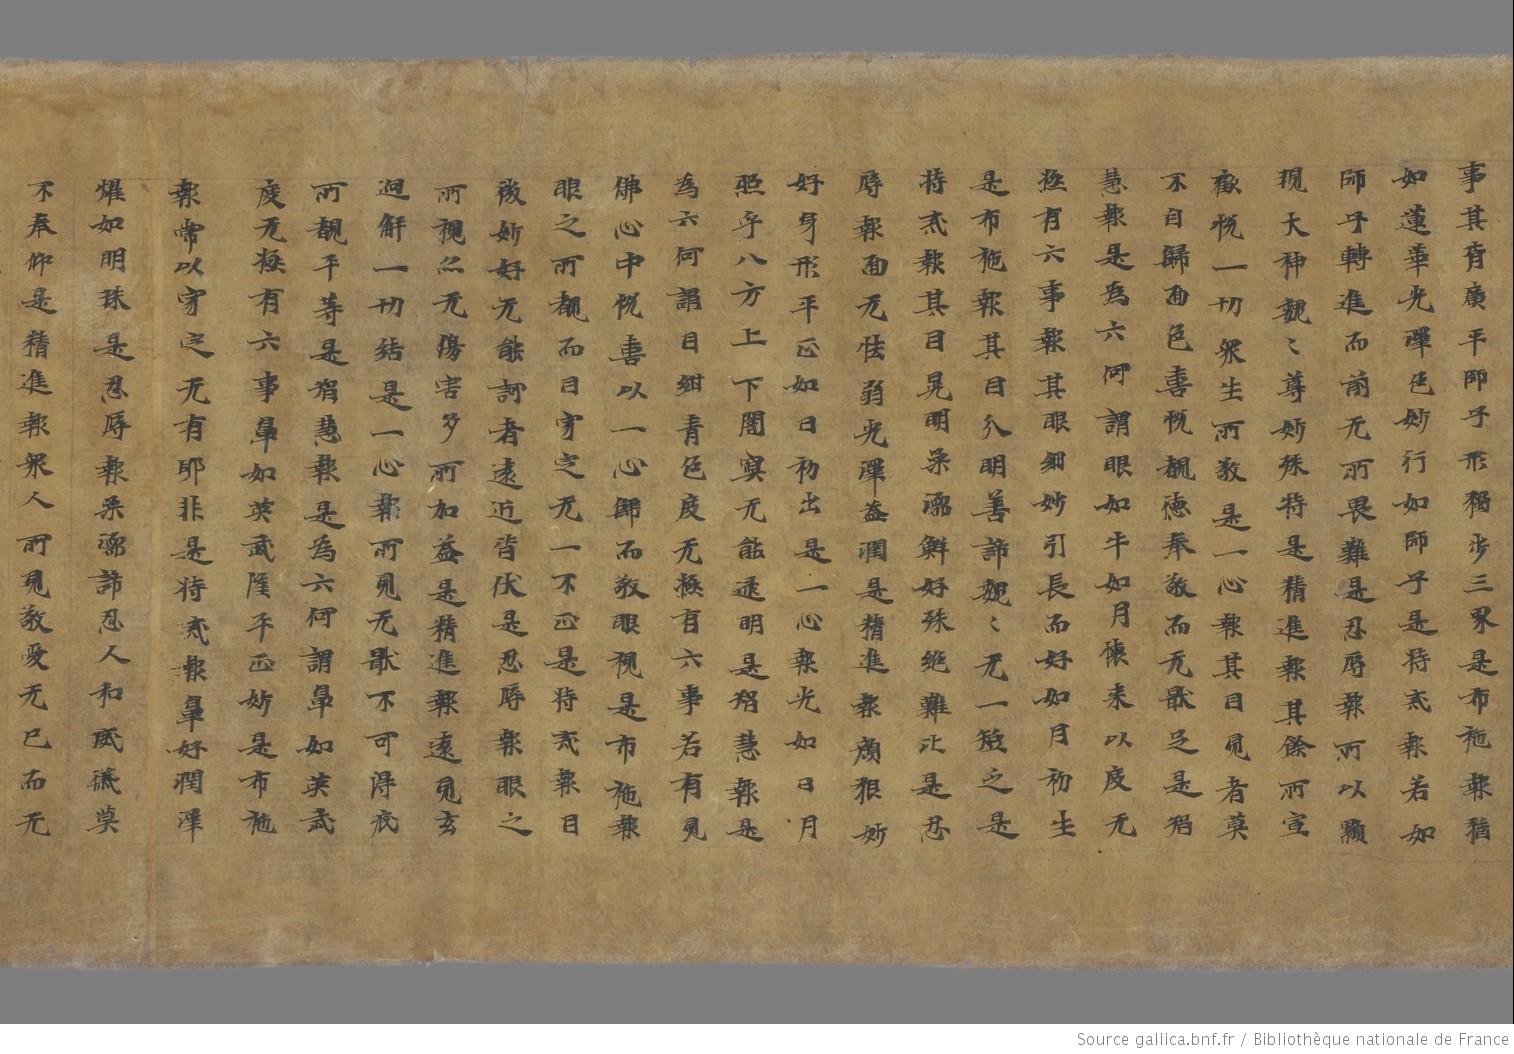 事其脊廣平師子形獨步三界是布施報猶
如蓮華光澤色妙行如師子是持戒報若如
師子轉進而前无所畏難是忍辱報所以顯
現天神巍〻尊妙殊特是精進報其餘所宣
歡悅一切衆生所敬是一心報其目見者莫
不自歸面色喜悅覩德奉敬而无猒足是智
慧報是為六何謂眼如牛如月懷来以度无
極有六事報其眼細妙引長而好如月初生
是布施報其目分明善諦巍〻无一短之是
持戒報其目晃明柔濡鮮好殊絶難比是忍
辱報面无怯弱光澤益潤是精進報顔狠妙
好身形平正如日初出是一心報光如日月
照乎八方上下闇冥无能逮明是智慧報是
為六何謂目紺青色度无極有六事若有見
佛心中悅喜以一心歸而敬眼視是布施報
眼之所覩而目穿之无一不正是持戒報目
微妙好无能訶者遠近皆伏是忍辱報眼之
所視亦无傷害多所加益是精進報遠見玄
迥解一切結是一心報所見无猒不可得底
所覩平等是智慧報是為六何謂鼻如英武
度无極有六事鼻如英武隆平正妙是布施
報常以守之无有邪非是持戒報鼻好潤澤
燿如明珠是忍辱報柔濡諦忍人和威儀莫
不奉仰是精進報衆人所見敬愛无已而无